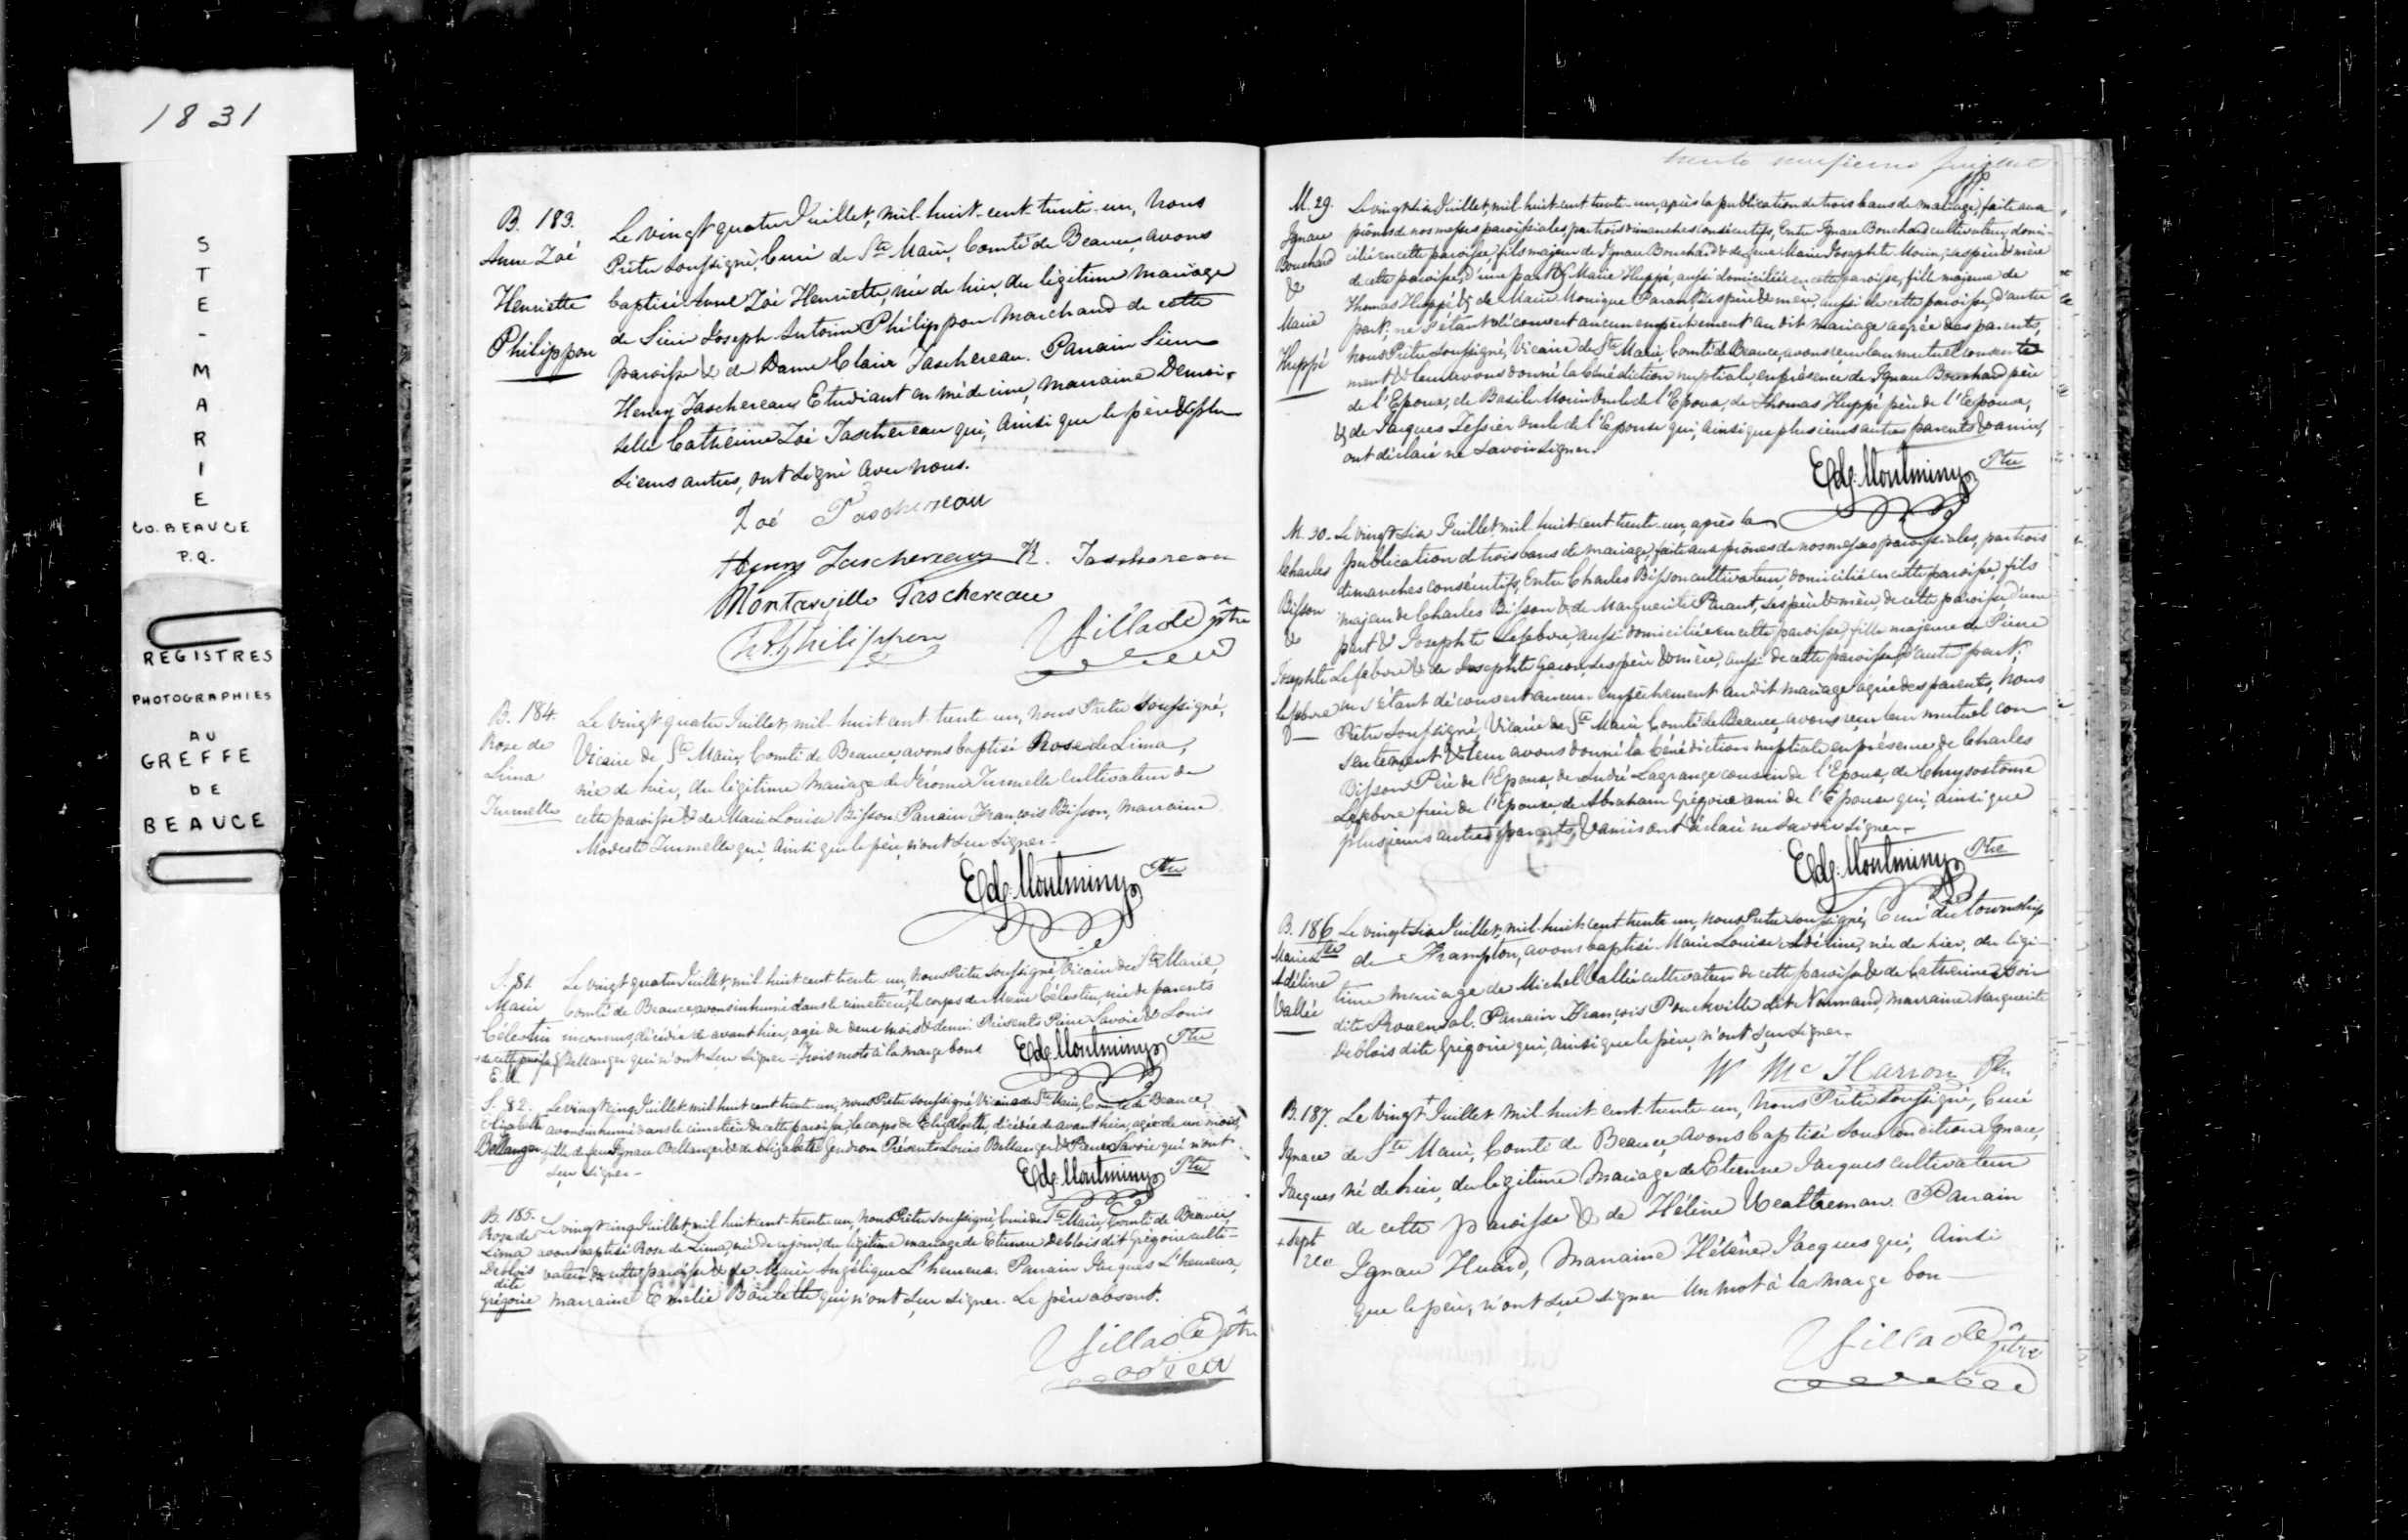 1831
STE-MARIE
CO. BEAUCE
P.Q.
REGISTRES
PHOTOGRAPHIES
AU
GREFFE
DE
BEAUCE
B. 183.
Anne Zoé
Henriette
Philippon
Le vingt quatre Juillet, mil-huit-cent-trente-un, Nous
Prêtre soussigné, Curé de Ste Marie, Comté de Beauce, avons
baptisé Anne Zoé Henriette, née de hier, du légitime mariage
de Sieur Joseph Antoine Philippon Marchand de cette
paroisse & de Dame Claire Taschereau. Parrain Sieur
Henry Taschereau Etudiant en médecine, marraine Demoi-
selle Catherine Zoé Taschereau qui, ainsi que le père & plu
sieurs autres, ont signé avec nous.
Zoé Taschereau
Henry Taschereau R. Taschereau
Montarville Taschereau
Philippon Villade ptre
B. 184.
Rose de
Lima
Turmelle
Le vingt quatre Juillet, mil-huit cent-trente-un, Nous Prêtre soussigné,
Vicaire de Ste Marie, Comté de Beauce, avons baptisé Rose de Lima,
née de hier, du légitime mariage de Jérome Turmelle cultivateur de
cette paroisse & de Marie Louise Bisson. Parrain François Bisson, marraine
Modeste Turmelle qui, ainsi que le père, n'ont sçu signer.
Edg. Montminy Ptre
S. 81.
Marie
Célestin
+ de cette paroisse
E.M.
Le vingt quatre Juillet, mil huit cent trente un, nous Prêtre soussigné, Vicaire de Ste Marie,
Comté de Beauce, avons inhumé dans le cimetière+, le corps de Marie Célestin, née de parents
inconnus, décédée de avant hier, agée de deux mois & demi. Présents Pierre Savoie & Louis
Bellanger qui n'ont sçu signer - Trois mots à la marge bons
Edg. Montminy Ptre
S. 82.
Elizabeth
Bellanger
Le vingt cinq Juillet mil huit cent trente un, nous Prêtre soussigné, Vicaire de Ste Marie, Comté de Beauce,
avons inhumé dans le cimetière de cette paroisse, le corps de Elizabeth, décédée de avant hier, agée de un mois,
fille de feu Ignace Bellanger & de Elizabeth Gendron. Présents Louis Bellanger & Pierre Savoie qui n'ont
sçu signer -
Edg. Montminy Ptre
B. 185.
Rose de
Lima
Deblois
dite
Grégoire
Le vingt cinq Juillet, mil huit cent-trente un, nous Prêtre soussigné, Curé de Ste Marie, Comté de Beauce,
avons baptisé Rose de Lima, née de ce jour, du légitime mariage de Etienne Deblois dit Grégoire culti-
vateur de cette paroisse & de Marie Angélique L'heureux. Parrain Jacques L'heureux,
marraine Emelie qui n'ont sçu signer. Le père absent.
Villade ptre
M. 29.
Ignace
Bouchard
&
Marie
Huppé
Le vingt six Juillet, mil-huit cent trente-un, après la publication de trois bans de mariage, faite aux
prônes de nos messes paroissiales, par trois dimanches consécutifs, Entre Ignace Bouchard cultivateur, domi-
cilié en cette paroisse, fils majeur de Ignace Bouchard & de feue Marie Josephte Morin, ses père & mère
de cette paroisse, d'une part & Marie Huppé, aussi domiciliée en cette paroisse, fille majeure de
Thomas Huppé & de Marie Monique Paran, ses père & mère, aussi de cette paroisse, d'autre
part; ne s'étant découvert aucun empêchement au dit mariage agréé des parents,
nous Prêtre soussigné, Vicaire de Ste Marie, Comté de Beauce, avons reçu leur mutuel consente
ment & leur avons donné la bénédiction nuptiale en présence de Ignace Bouchard père
de l'Epoux, de Basile Morin oncle de l'Epoux, de Thomas Huppé père de l'Epouse,
& de Jacques Tessier oncle de l'Epouse qui, ainsi que plusieurs autres parents & amis,
ont déclaré ne savoir signer.
Edg. Montminy Ptre
M. 30.
Charles
Bisson
&
Josephte
Lefebvre
Le vingt six Juillet mil-huit cent trente-un, après la
publication de trois bans de mariage, faite aux prônes de nos messes paroissiales, par trois
dimanches consécutifs, Entre Charles Bisson cultivateur, domicilié en cette paroisse, fils
majeur de Charles Bisson & de Marguerite Parant, ses père & mère, de cette paroisse, d'une
part & Josephte Lefebvre, aussi domiciliée en cette paroisse, fille majeure de Pierre
Lefebvre & de Josephte , ses père & mère, aussi de cette paroisse, d'autre part;
ne s'étant découvert aucun empêchement au dit mariage agréé des parents, Nous
Prêtre soussigné, Vicaire de Ste Marie Comté de Beauce, avons reçu leur mutuel con
sentement & leur avons donné la bénédiction nuptiale en présence de Charles
Bisson Père de l'Epoux, de André Lagrange cousin de l'Epoux, de Chrysostome
Lefebvre frère de l'Epouse, de Abraham Grégoire ami de l'Epouse qui, ainsi que
plusieurs autres parents & amis ont déclaré ne savoir signer.
Edg. Montminy Ptre
B. 186
Marie Lse
Adéline
Vallée
Le vingt six Juillet, mil-huit cent trente un, nous Prêtre soussigné, Curé du township
de Frampton, avons baptisé Marie Louise Adéline, née de hier, du légi-
time mariage de Michel Vallée cultivateur de cette paroisse & de Catherine
dite Provençal. Parrain François dit Normand, marraine Marguerite
Deblois dite Grégoire qui, ainsi que le père, n'ont sçu signer.
W Mc Harron Ptre
B. 187.
Ignace
Jacques
+ sept
Le vingt+ Juillet mil-huit-cent-trente-un, Nous Prêtre soussigné, Curé
de Ste Marie, Comté de Beauce, avons baptisé sous condition Ignace,
né de hier, du légitime mariage de Etienne Jacques cultivateur
de cette paroisse & de Hélène . Parrain
Ignace Huard, Marraine Hélène Jacques qui, ainsi
que le père, n'ont sçu signer Un mot à la marge bon
Villade ptre